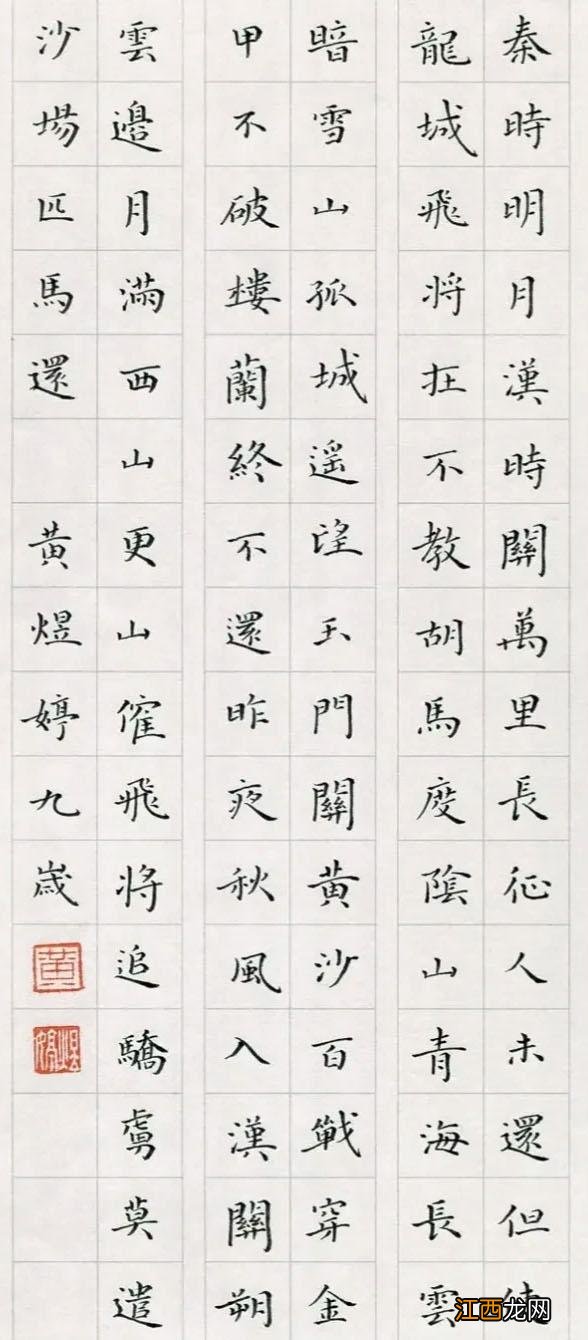 秦時明月漢時關萬里長征人未還但使
龍城飛将在不教胡馬度陰山青海長雲
暗雪山孤城遥望玉門關黃沙百戰穿金
甲不破樓蘭終不還昨夜秋風入漢關朔
雲邊月滿西山更山催飛将追驕虜莫遣
沙場匹馬還 黃煜婷九歲
黃
煜婷
江西龙网